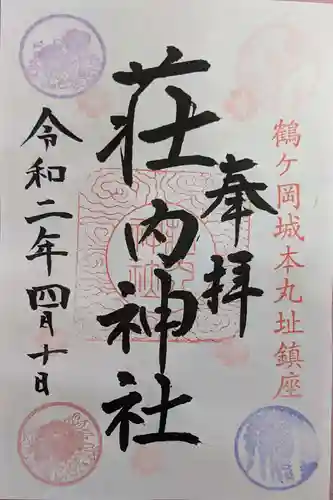 鶴ヶ岡城本丸址鎮座
奉拝
荘内神社
令和二年四月十日